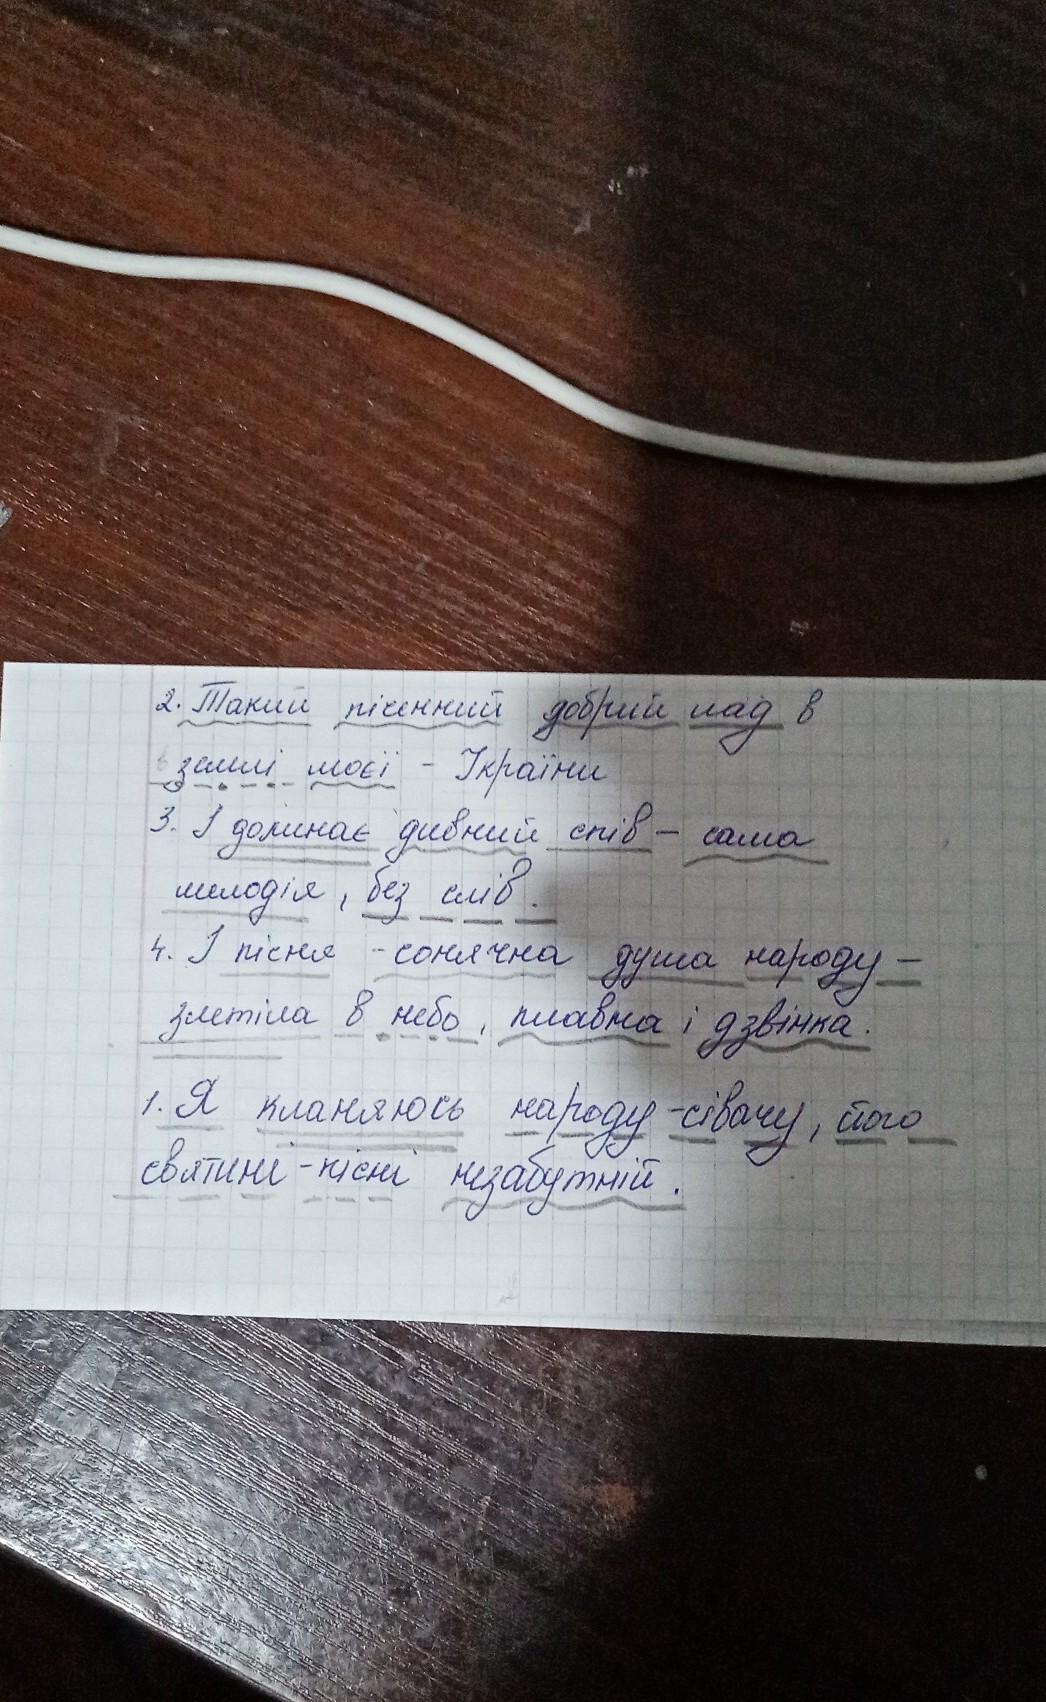 2. Такий пісенний добрий лад в
в землі моєї - України
3. І долинає дивний спів – сама
мелодія, без слів.
4. І пісня - сонячна душа народу –
злетіла в небо, плавна і дзвінка.
1. Я кланяюсь народу-сівачу, його
святині - пісні незабутній.